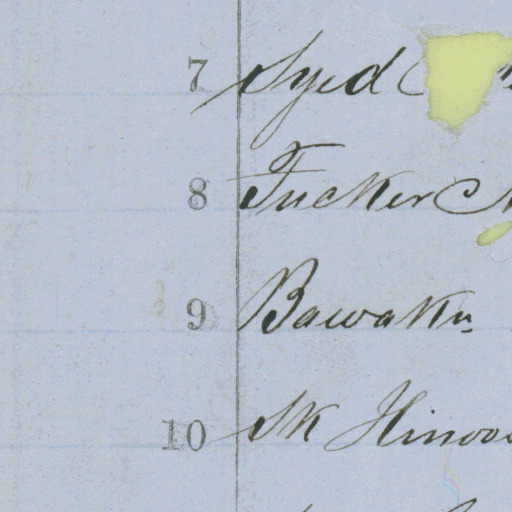 7 Syed
8 Tucker
9 Bawaku
10 Sk Hinoo